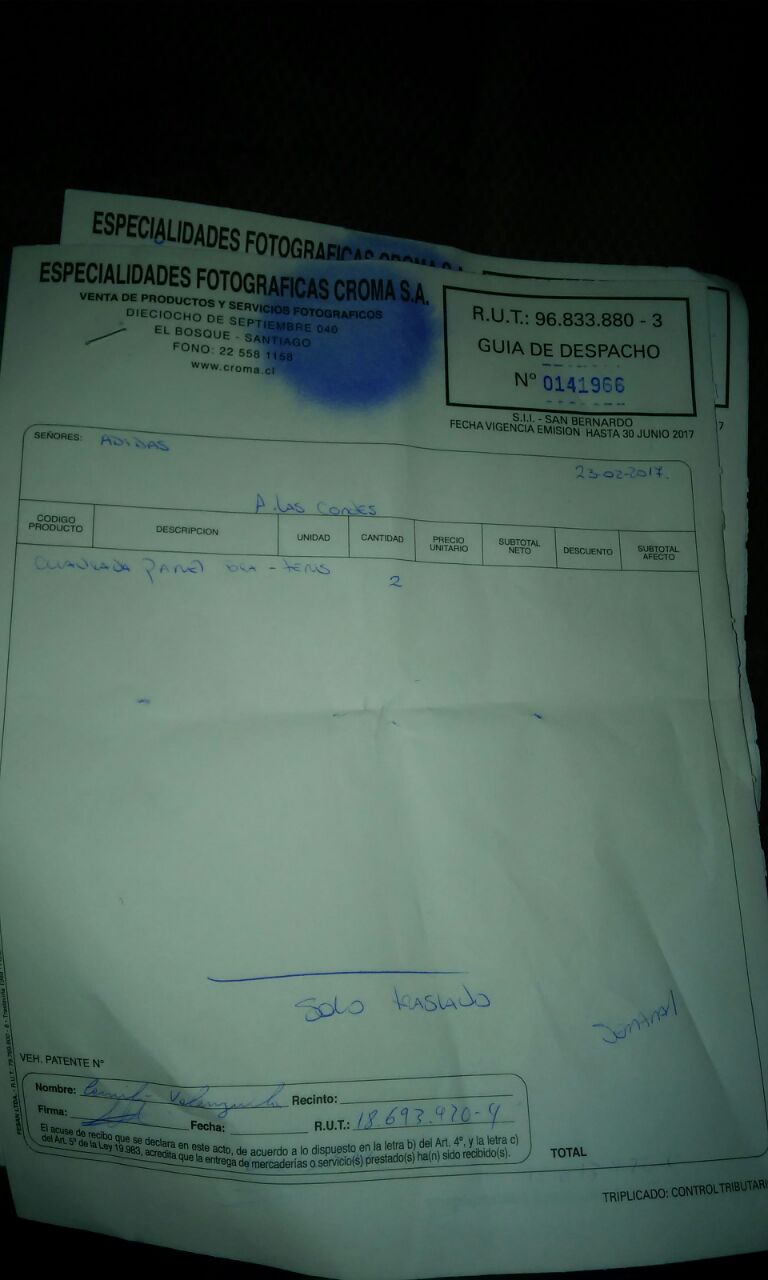 ESPECIALIDADES FOTOGRAFICAS CROMA S.A.
ESPECIALIDADES FOTOGRAFICAS CROMA S.A.
VENTA DE PRODUCTOS Y SERVICIOS FOTOGRAFICOS
DIECIOCHO DE SEPTIEMBRE 040
EL BOSQUE - SANTIAGO
FONO: 22 558 1158
www.croma.cl
R.U.T.: 96.833.880 - 3
GUIA DE DESPACHO
Nº 0141966
S.I.I. - SAN BERNARDO
FECHA VIGENCIA EMISION HASTA 30 JUNIO 2017
SEÑORES: ADIDAS
23-02-2017.
A. Las Condes
CODIGO PRODUCTO DESCRIPCION UNIDAD CANTIDAD PRECIO UNITARIO SUBTOTAL NETO DESCUENTO SUBTOTAL AFECTO
2
Solo traslado
VEH. PATENTE Nº
Nombre: Valenzuela Recinto:
Firma: Fecha: R.U.T.: 18.693.920-4
El acuse de recibo que se declara en este acto, de acuerdo a lo dispuesto en la letra b) del Art. 4º, y la letra c)
del Art. 5º de la Ley 19.983, acredita que la entrega de mercaderías o servicio(s) prestado(s) ha(n) sido recibido(s).
TOTAL
TRIPLICADO: CONTROL TRIBUTARI